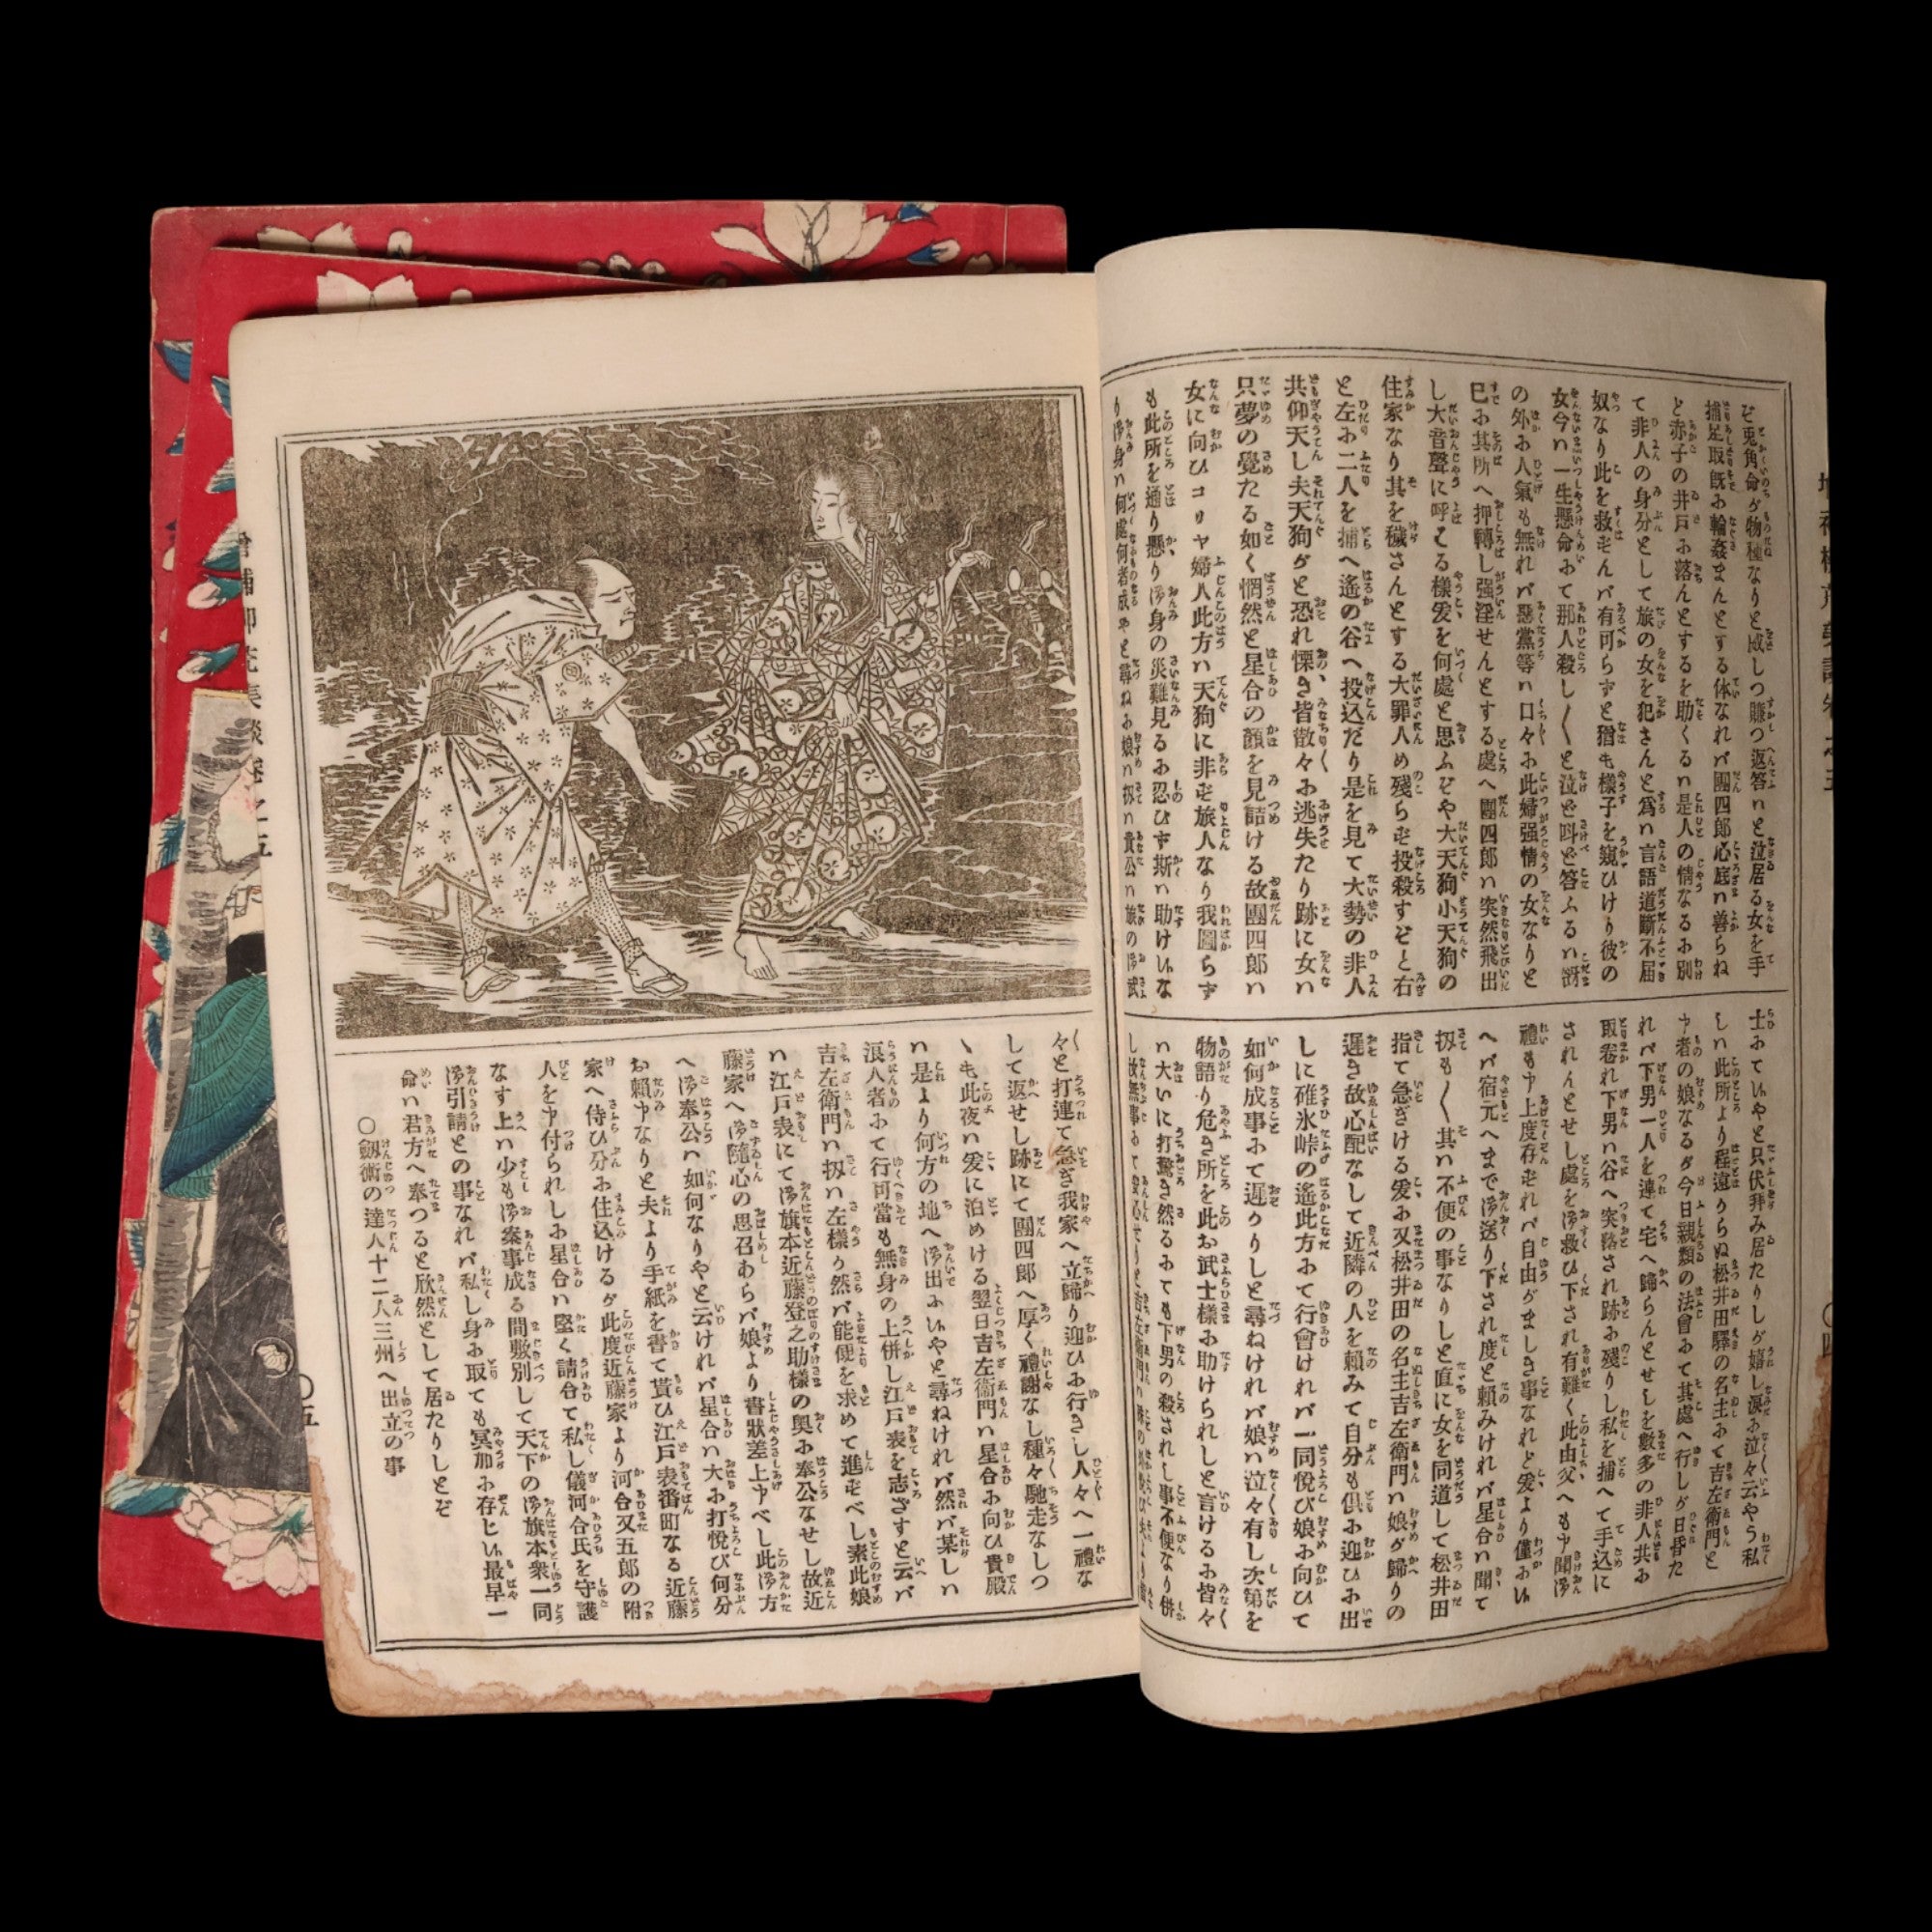 ぞ兎角命が物種なりと威しつ賺つ返答はと泣居る女を手
捕足取既に輪姦まんとする体なれば團四郎心底は善らね
と赤子の井戸に落んとするを助くるは是人の情なるに別
て非人の身分として旅の女を犯さんと爲は言語道斷不届
奴なり此を救せんば有可らずと猶も樣子を窺ひけり彼の
女今は一生懸命にて那人殺し〳〵と泣ど叫ど答ふるは谺
の外に人氣も無れば惡黨等は口々に此婦强情の女なりと
已に其所へ押轉し强淫せんとする處へ團四郎は突然飛出
し大音聲に呼はる樣爰を何處と思ふぞや大天狗小天狗の
住家なり其を穢さんとする大罪人め殘らず投殺すぞと右
と左に二人を捕へ遙の谷へ投込だり是を見て大勢の非人
共仰天し夫天狗がと恐れ慄き皆散々に逃失たり跡に女は
只夢の覺たる如く惘然と星合の顔を見詰ける故團四郎は
女に向ひコリヤ婦人此方は天狗に非ず旅人なり我圖らず
も此所を通り懸り御身の災難見るに忍びず斯は助けしな
り御身は何處何者成やと尋ねに娘は扨は貴公は旅の御武
士にてしやと只伏拜み居たりしが嬉し涙に泣々云やう私
しは此所より程遠からぬ松井田驛の名主にて吉左衛門と
申者の娘なるが今日親類の法會にて其處へ行しが日昏た
れば下男一人を連て宅へ歸らんとせしを數多の非人共に
取卷れ下男は谷へ突落され跡に殘りし私を捕へて手込に
されんとせし處を御救ひ下され有難く此由父へも申聞御
禮も申上度存ずれば自由がましき事なれと爰より僅にし
へば宿元へまで御送り下され度と賴みければ星合は聞て
扨も〳〵其は不便の事なりしと直に女を同道して松井田
指て急ぎける爰に又松井田の名主吉左衛門は娘が歸りの
遲き故心配なして近隣の人を賴みて自分も倶に迎ひに出
しに碓氷峠の遙此方にて行會ければ一同悅び娘に向ひて
如何成事にて遲かりしと尋ねければ娘は泣々有し次第を
物語り危き所を此お武士樣に助けられしと言けるに皆々
は大いに打驚き然るにても下男の殺されし事不便なり併
く
々と打連て急ぎ我家へ立歸り迎ひに行きし人々へ一禮な
して返せし跡にて團四郎へ厚く禮謝なし種々馳走なしつ
ゝも此夜は爰に泊めける翌日吉左衛門は星合に向ひ貴殿
は是より何方の地へ御出にしやと尋ねければ然ば某しは
浪人者にて行可當も無身の上併し江戸表を志ざすと云ば
吉左衛門は扨は左樣か然ば能便を求めて進ずべし素此娘
は江戸表にて御旗本近藤登之助樣の奥に奉公なせし故近
藤家へ御隨心の思召あらば娘より書狀差上申べし此御方
へ御奉公は如何なりやと云ければ星合は大に打悅び何分
お賴申なりと夫より手紙を書て貰ひ江戸表番町なる近藤
家へ侍ひ分に住込けるが此度近藤家より河合又五郎の附
人を申付られしに星合は堅く請合て私し儀河合氏を守護
なす上は少も御案事成る間敷別して天下の御旗本衆一同
御引請との事なれば私し身に取ても冥加に存じし最早一
命は君方へ奉つると欣然として居たりしとぞ
〇劔術の達人十二人三州へ出立の事
〇五